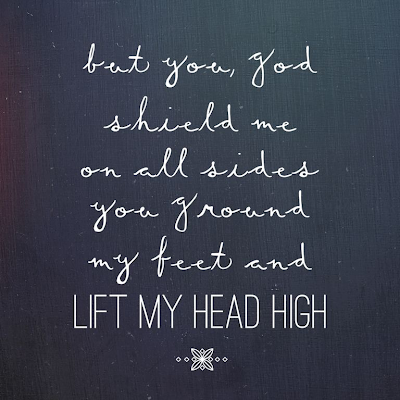 but you, God
shield me
on all sides
you ground
my feet and
LIFT MY HEAD HIGH